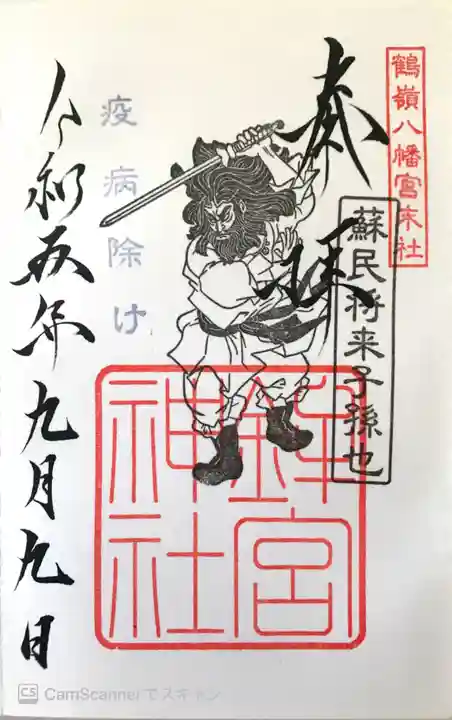 鶴嶺八幡宮末社
奉拝
蘇民将来子孫也
鉾宮
神社
疫病除け
令和五年九月九日
CS CamScannerでスキャン